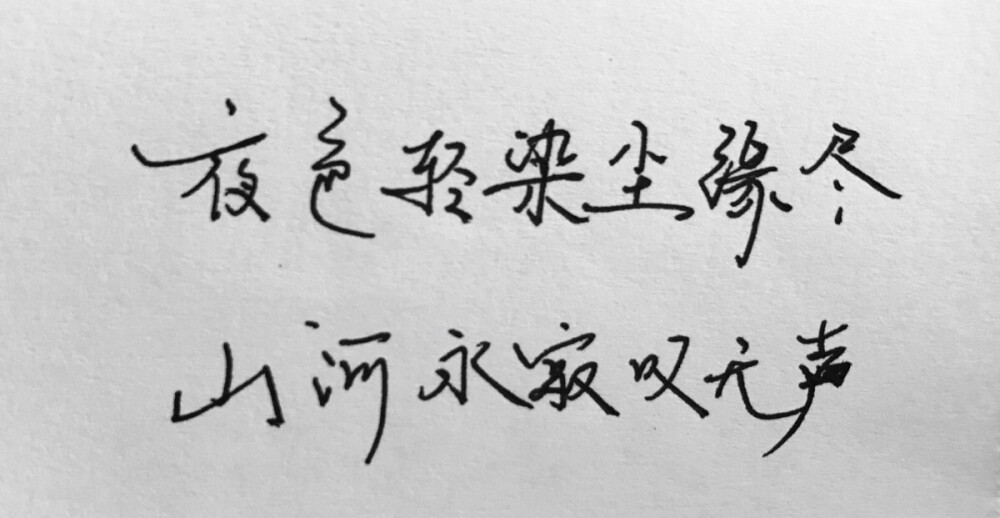 夜色轻染尘缘尽
山河永寂叹无声